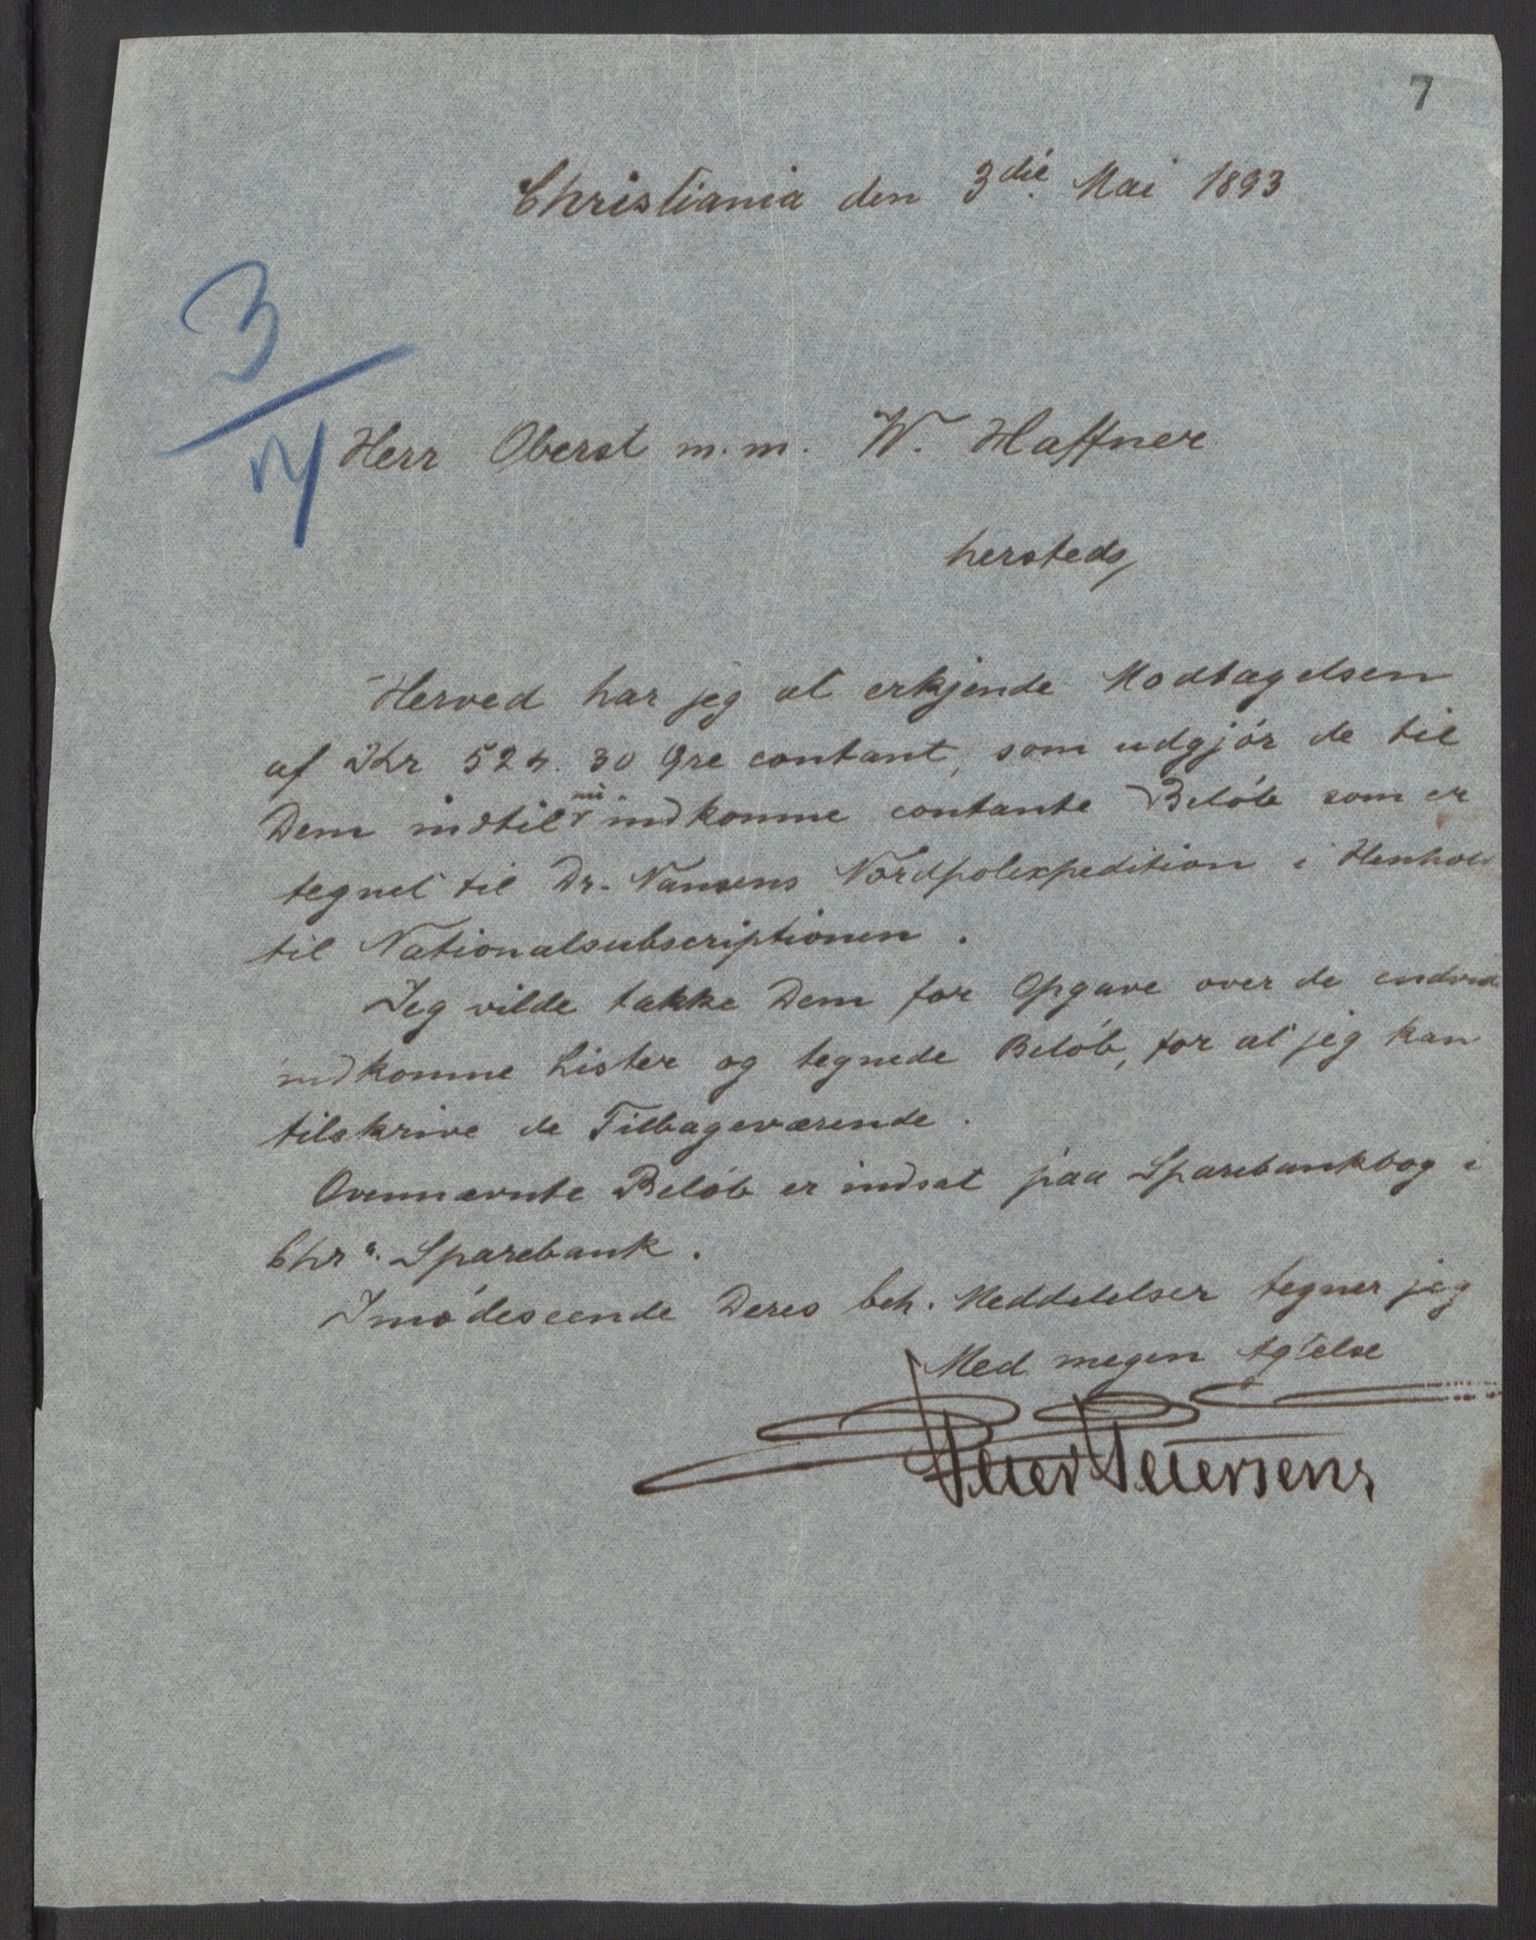 7
Christiania den 3die Mai 1893
3/
Herr Oberst m.m. W. Haffner
hersteds
Herved har jeg at erkjende Modtagelsen
af Kr 524. 30 Øre contant, som udgjør de til
Dem indtil nu indkomne contante Beløb som er
tegnet til Dr. Nansens Nordpolexpedition i Henhold
til Nationalsubscriptionen.
Jeg vilde takke Dem for Opgave over de
indkomne Lister og tegnede Beløb, for at jeg kan
tilskrive de Tilbageværende.
Ovennævnte Beløb er indsat paa Sparebankbog i
Chra. Sparebank.
Imødeseende Deres beh. Meddelelser tegner jeg
Med megen Agtelse
Peter Petersen